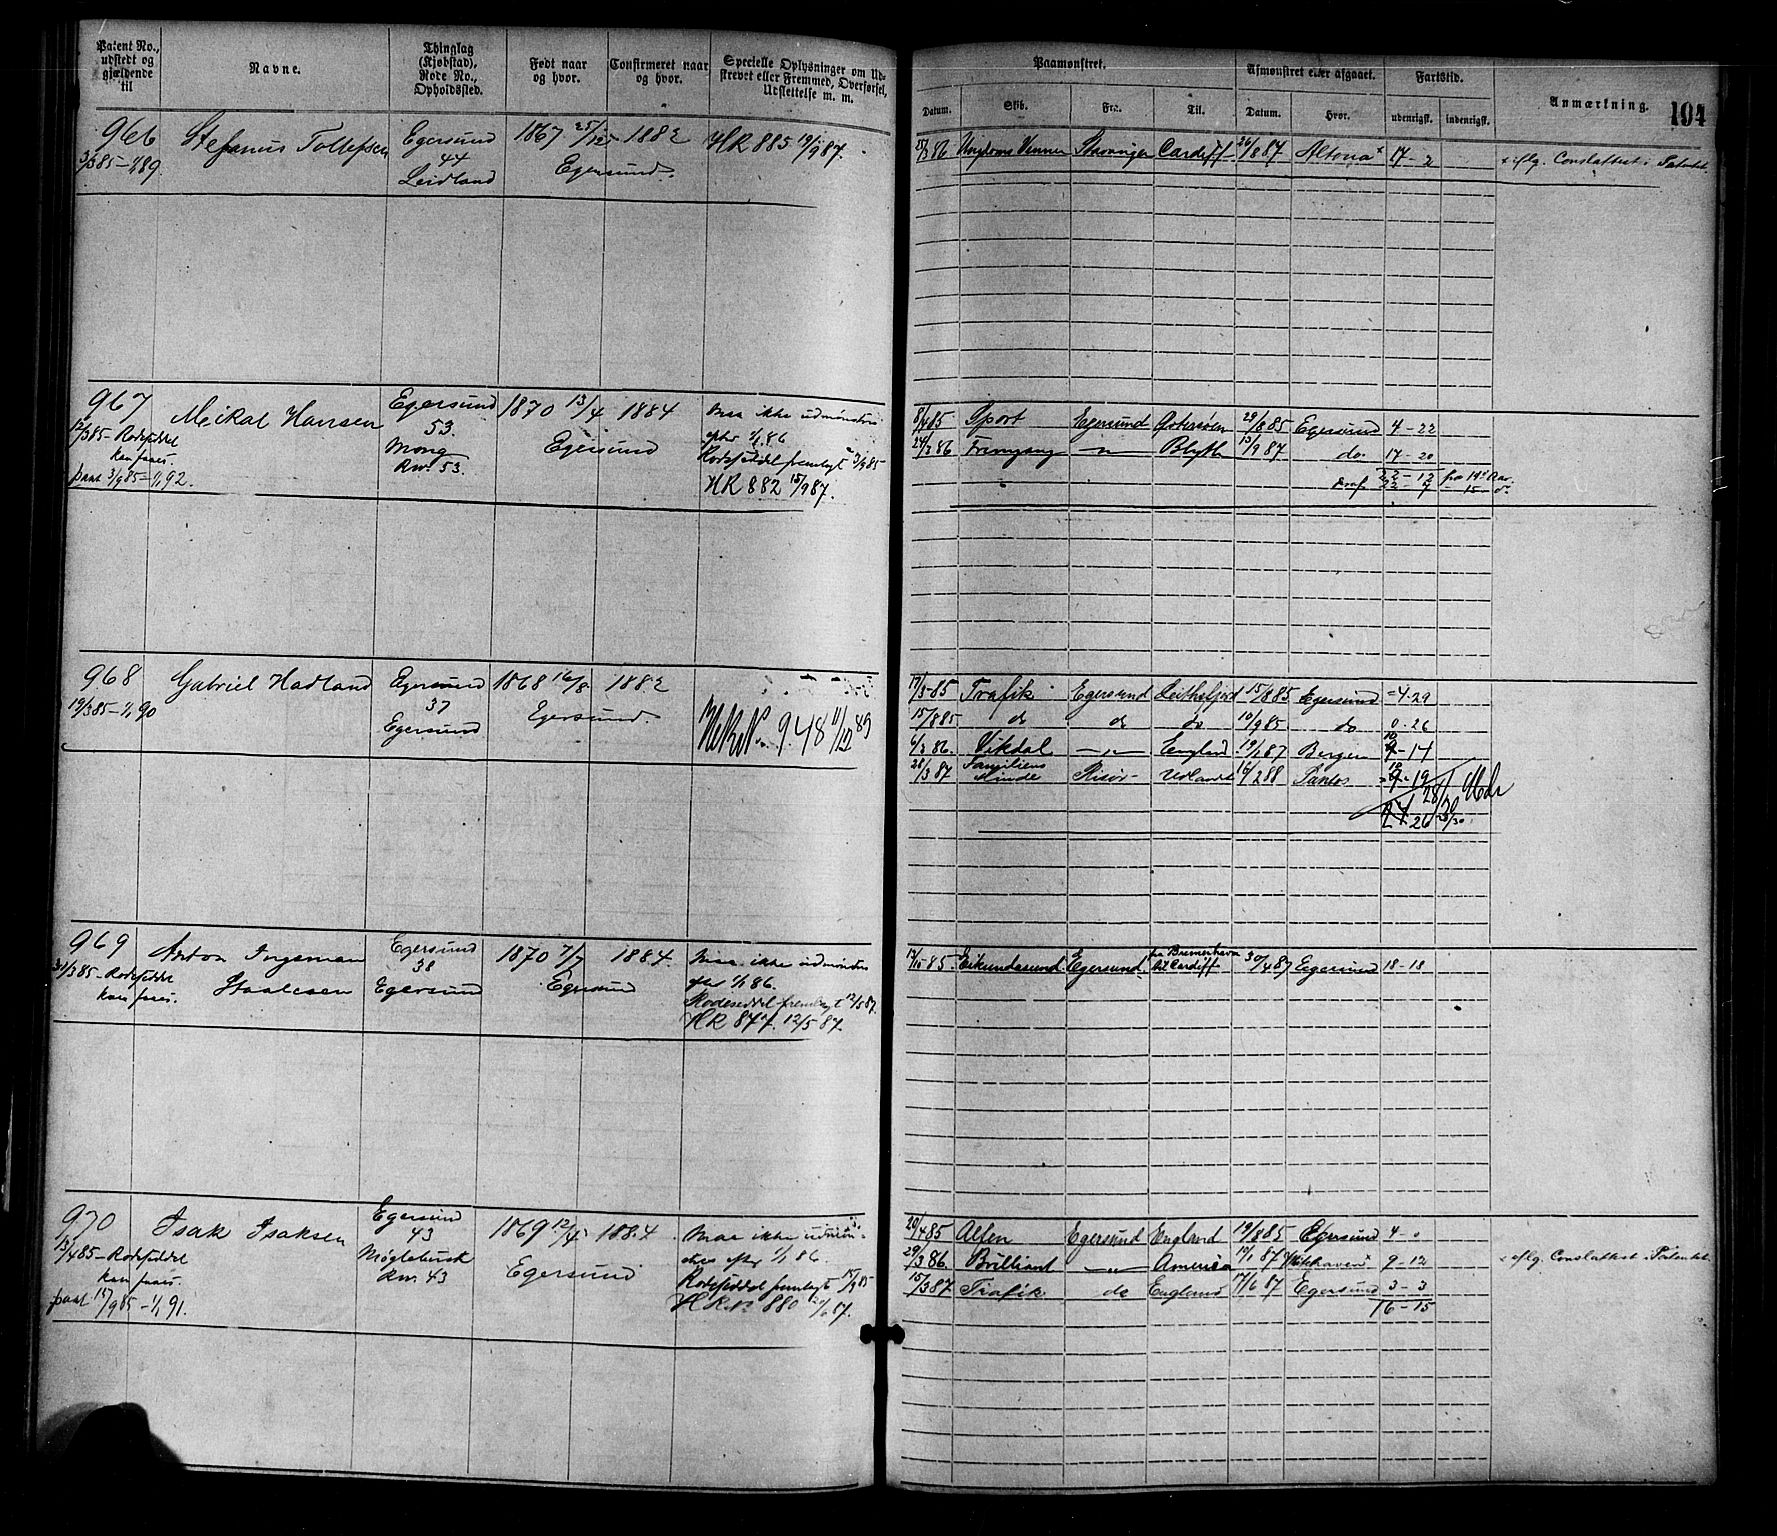 Patent No., udstedt og gjældende til
Navne.
Thinglag (Kjøbstad), Rode No., Opholdssted.
Født naar og hvor.
Confirmeret naar og hvor.
Specielle Oplysninger om Udskrevet eller Fremmed, Overførsel, Udslettelse m. m.
Paamønstret.
Afmønstret eller afgaaet.
Fartstid.
Anmærkning.
104
Datum.
Skib.
Fra.
Til.
Datum.
Hvor.
udenrigsk.
indenrigsk.
966 Stefanus Tollefsen Egersund 1867 25/12 1882 HR 885 19/9 87.
3/3 85 – 1/1 89. 44
Leidland Egersund.
25/3 86 Ungdoms Venner Stavanger Cardiff 26/8 87 Altona x 17 - 2 x iflg. Conslattest i Patentet
967 Meikal Hansen Egersund 1870 13/4 1884 Maa ikke udmønstres
12/3 85 – Rodeseddel 53. efter 1/1 86
kan faaes. Mong Egersund Rodeseddel fremlagt 3/9 85
paat 3/9 85 – 1/1 92. Rno. 53. HR 882 15/9 87.
8/4 85 Sport Egersund Østersøen 29/8 85 Egersund 4 - 22
24/3 86 Fremgang — " — Blyth 13/9 87 do. 17 - 20
22 - 12 fra 14de Aar.
22 - 7 - 15 - do
968 Gabriel Hadland Egersund 1868 16/8 1882
19/3 85 – 1/1 90 37
Egersund Egersund. HR No. 948 11/12 89
17/3 85 Trafik Egersund Leithefjord 15/8 85 Egersund 4 - 29
15/8 85 do do do 10/9 85 do 0 - 26
6/3 86. Vikdal — " — England 19/1 87 Bergen 10 - 14
28/3 87 Familiens Minde Risør Udlandet 16/2 88 Santos 10 - 19
26 28/30
969 Anton Ingeman Egersund 1870 7/7 1884. Maa ikke udmønstres
31/3 85 – Rodeseddel Staalesen 38 efter 1/1 86.
kan faaes. Egersund Egersund Rodeseddel fremlagt 12/5 87.
HR 877. 12/5 87.
12/10 85 Eikundasund Egersund fra Bremerhavn til Cardiff 30/4 87 Egersund 18 - 18
970 Isak Isaksen Egersund 1869 12/4 1884 Maa ikke udmøn-
13/4 85 – Rodeseddel 43 stres efter 1/1 86.
kan faaes. Møglebust Egersund Rodeseddel fremlagt 15/9 85
paat 15/9 85 – 1/1 91. Rno. 43 HR No 880 /6 87.
20/4 85 Alfen Egersund England 19/8 85 Egersund 4 - 0
29/3 86. Brilliant — " — America 19/1 87 9 - 12 x iflg. Conslattest i Patentet
15/3 87 Trafik do England 17/6 87 Egersund 3 - 3
16 - 15